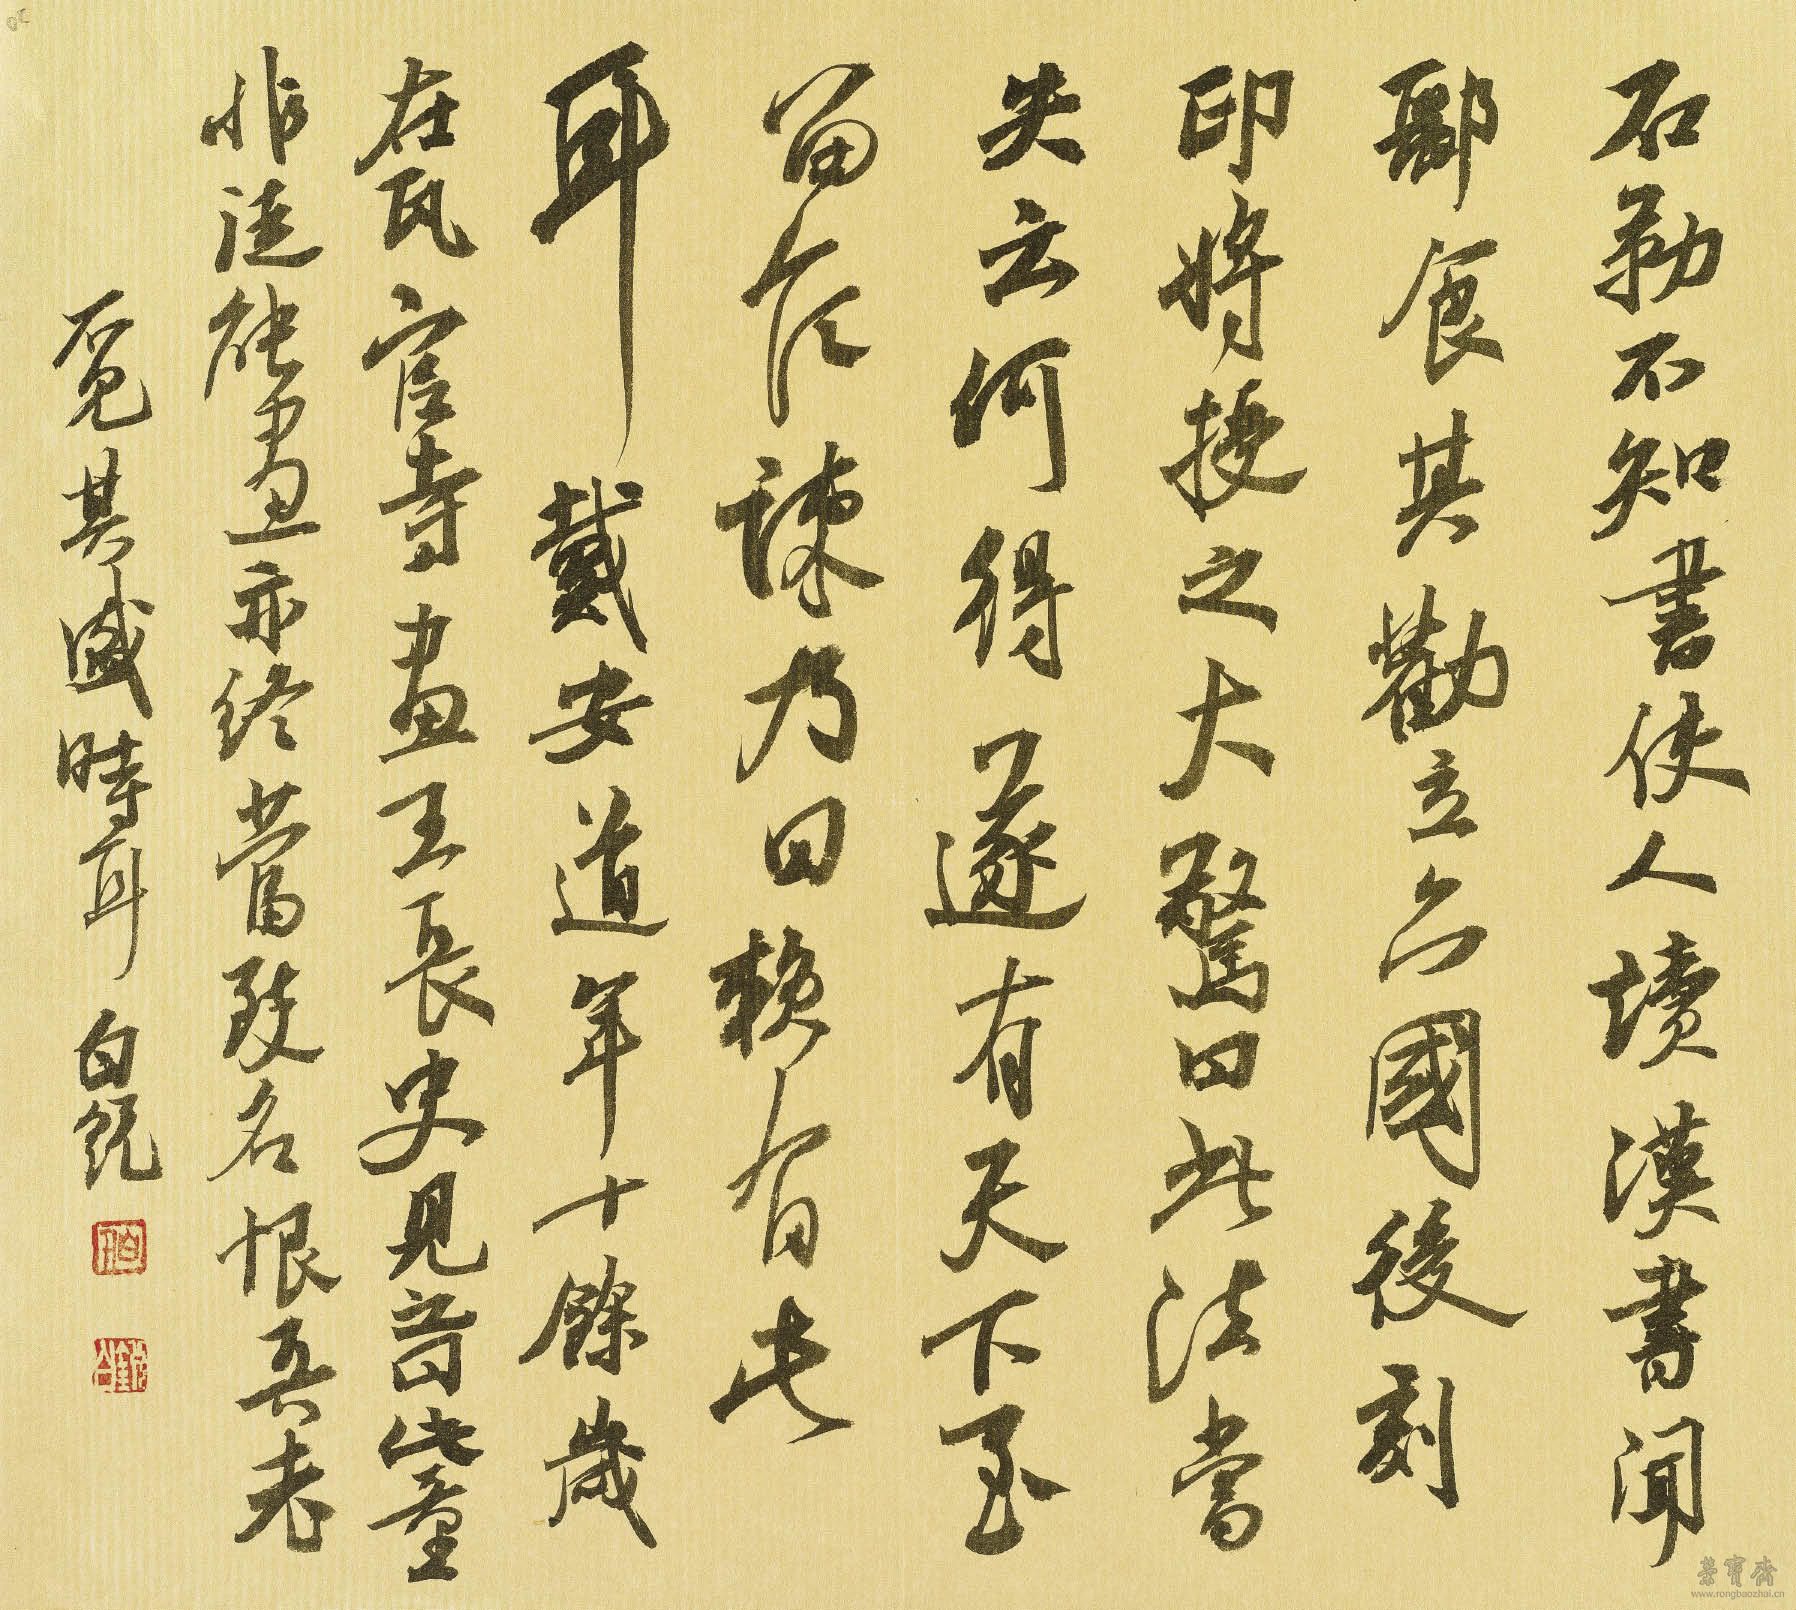 石勒不知書使人讀漢書聞
酈食其勸立六國後刻
印將授之大驚曰此法當
失云何得遂有天下至
留侯諫乃曰賴有此
耳戴安道年十餘歲
在瓦官寺畫王長史見之曰此童
非徒能畫亦終當致名恨吾老
不見其盛時耳 白銳
榮寶齋
www.rongbaozhai.cn